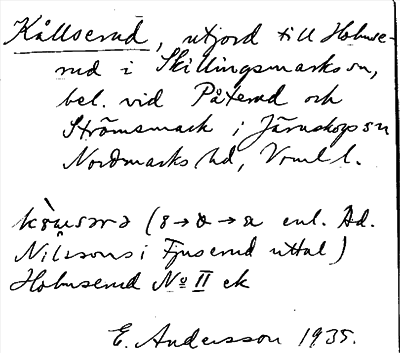 Kållserud, utjord till Holmse-
rud i Skillingsmarks sn,
bel. vid Påterud och
Strömsmark i Järnskogs sn
Nordmarks hd, Vrml l.
(8→ → enl. Ad.
Nilssons i Fjuserud uttal)
Holmserud № II ek
E. Andersson 1935.